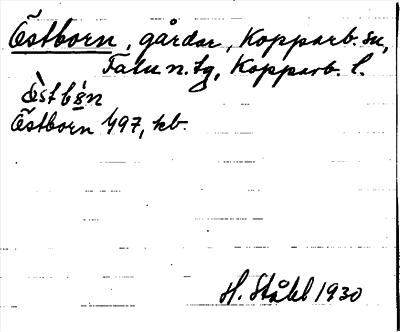 Östborn, gårdar, Kopparb. sn,
Falu n. tg, Kopparb. l.
Östborn 1/97, kb.
H. Ståhl 1930